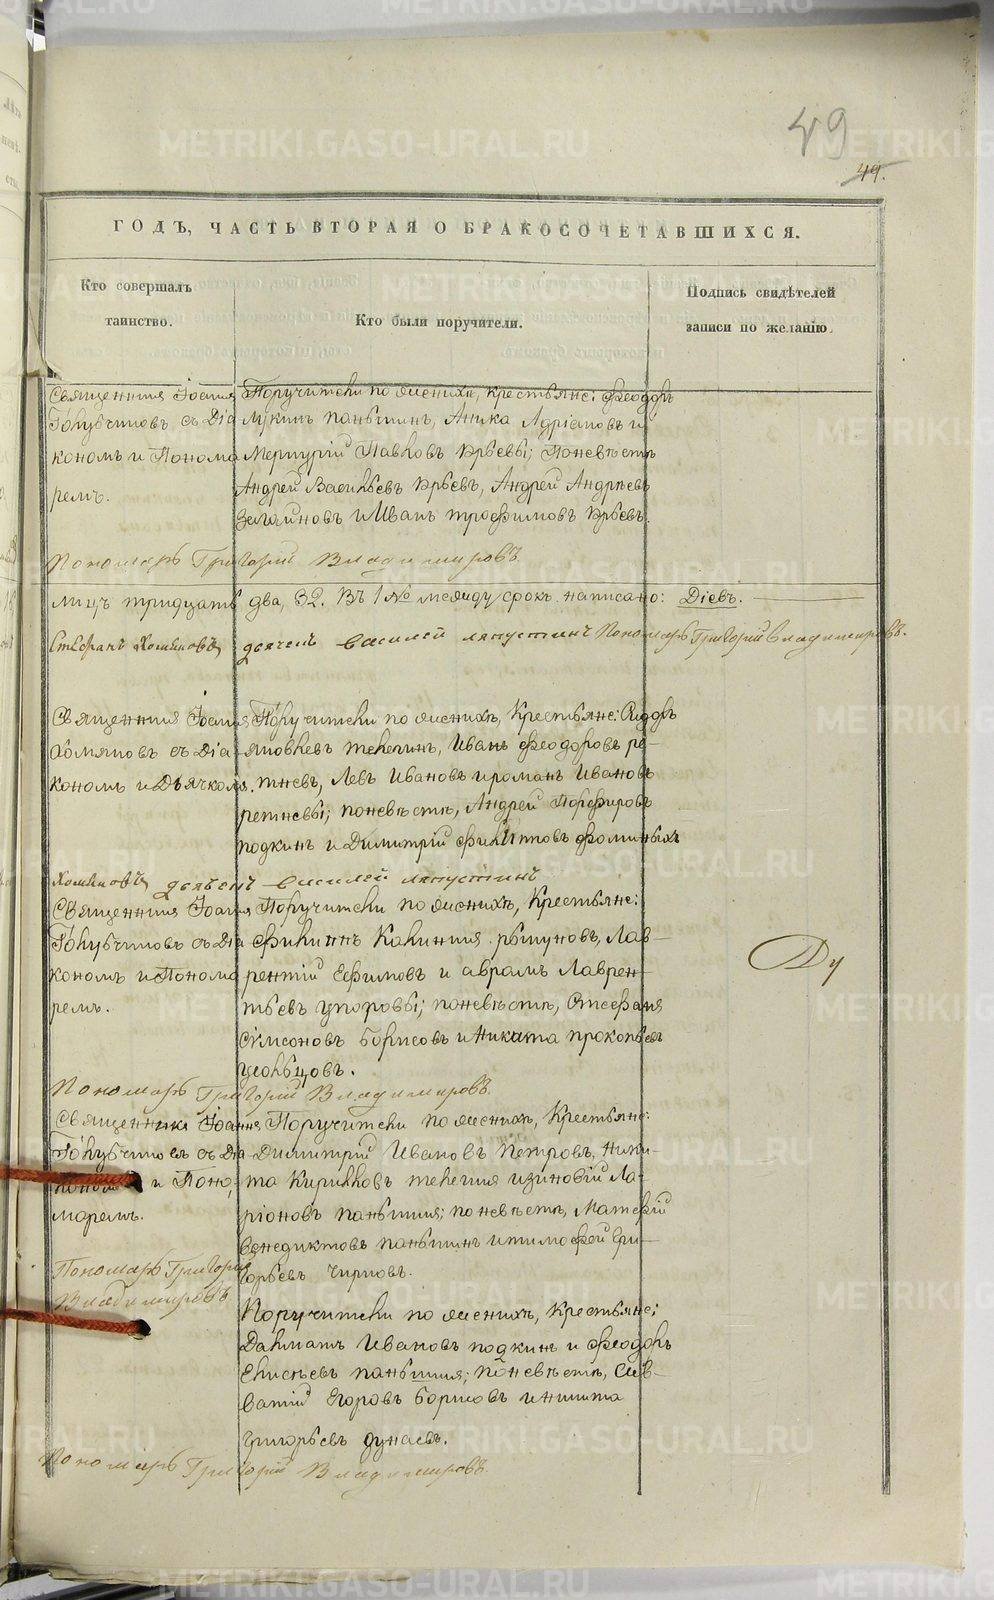 49
49.
ГОДЪ, ЧАСТЬ ВТОРАЯ О БРАКОСОЧЕТАВШИХСЯ.
Кто совершалъ
таинство.
Кто были поручители.
Подпись свидѣтелей
записи по желанію.
Священникъ Іоаннъ
Голубчиковъ съ Діа
кономъ и Понома
ремъ.
Поручители по женихѣ, крестьяне: Феодоръ
Лукинъ паньшинъ, Аника Адріановъ и
Меркурій Павловъ Юрьевы; По невѣстѣ
Андрей Васильевъ Юрьевъ, Андрей Андреевъ
и Иванъ трофимовъ Юрьевъ.
Пономарь Григорій Владимировъ
лицъ тридцать два, 32. Въ 1 № между срокъ написано: Діевъ.
Стефанъ Хомяковъ дьячекъ василей ляпустинъ Пономарь Григорій владимировъ.
Священникъ Іоаннъ
Хомяковъ съ Діа-
кономъ и Дьячкомъ.
Поручители по женихѣ, Крестьяне:
Яковлевъ телегинъ, Иванъ феодоровъ ре-
тневъ, Левъ Ивановъ и романъ Ивановъ
ретневы; по невѣстѣ, Андрей Порфировъ
подкинъ и Димитрій филипповъ фоминыхъ
Хомяковъ дьячекъ василей ляпустинъ
Священникъ Іоаннъ
Голубчиковъ съ Діа
кономъ и Понома
ремъ.
Поручители по женихѣ, Крестьяне:
филиппъ Калининъ Лав-
рентій Ефимовъ и аврамъ Лаврен-
тьевъ упоровы; по невѣстѣ, Стефанъ
Симоновъ Борисовъ и Никита прокопьевъ
усольцовъ.
Ду
Пономарь Григорій Владимировъ
Священникъ Іоаннъ
Голубчиковъ съ Діа
кономъ и Поно-
маремъ.
Поручители по женихѣ, Крестьяне:
Димитрій Ивановъ петровъ, Ники-
та Кирилловъ телегинъ и зиновій Ла-
ріоновъ паньшинъ; по невѣстѣ, Матвѣй
венедиктовъ паньшинъ и тимофей Гри-
горьевъ чирковъ.
Пономарь Григорій
Владимировъ
Поручители по женихѣ, Крестьяне:
Далматъ Ивановъ подкинъ и феодоръ
Елисѣевъ паньшинъ; по невѣстѣ, Сав-
ватій Егоровъ Борисовъ и никита
григорьевъ дунаевъ.
Пономарь Григорій Владимировъ